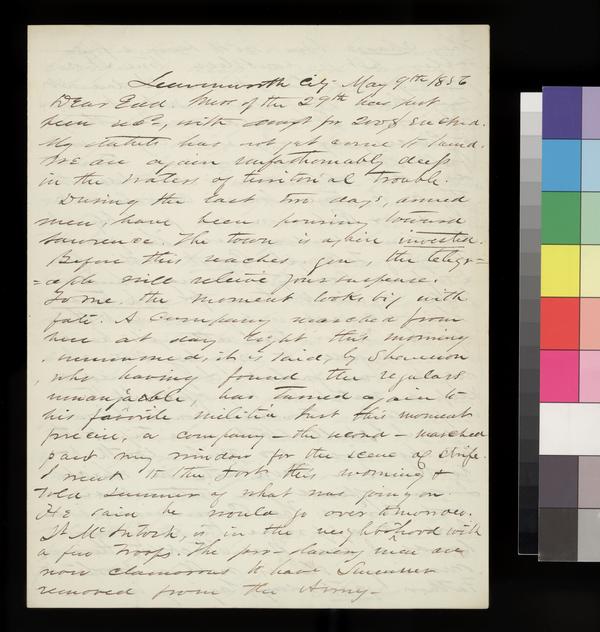 Leavenworth City May 9th 1856
Dear Ead. Yours of the 29th has just
been recd, with draft for 200$ enclosed.
My statute has not yet come to hand.
We are again unfathomably deep
in the waters of territorial trouble.
During the last two days, armed
men, have been pouring toward
Lawrence. The town is again invested.
Before this reaches you, the telegr=
=aph will relieve your suspense.
To me the moment looks big with
fate. A Company marched from
here at day light this morning
summoned, it is said, by Shannon
who having found the regulars
unmanageable, has turned again to
his favorite militia. Just this moment
precise, a company - the second - marched
past my window for the scene of strife.
I went to the fort this morning &
told Sumner of what was going on
He said he would go over tomorrow.
Lt McIntosh, is in the neighborhood with
a few troops. The pro-slavery men are
now clamorous to have Sumner
removed from the Army -